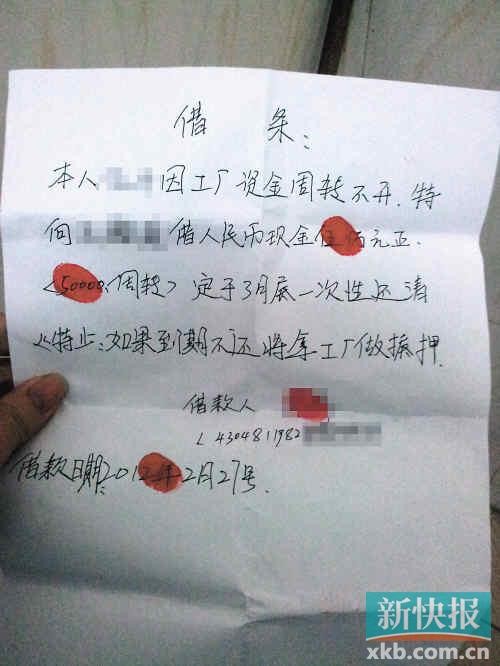 借 条:
本人 因工厂资金周转不开.特
向 借人民币现金伍万元正.
<50000.周转> 定于3月底一次性还清
特止:如果到期不还将拿工厂做抵押.
借款人
(4304811982
借款日期:2012年2月27号.
新快报
xkb.com.cn